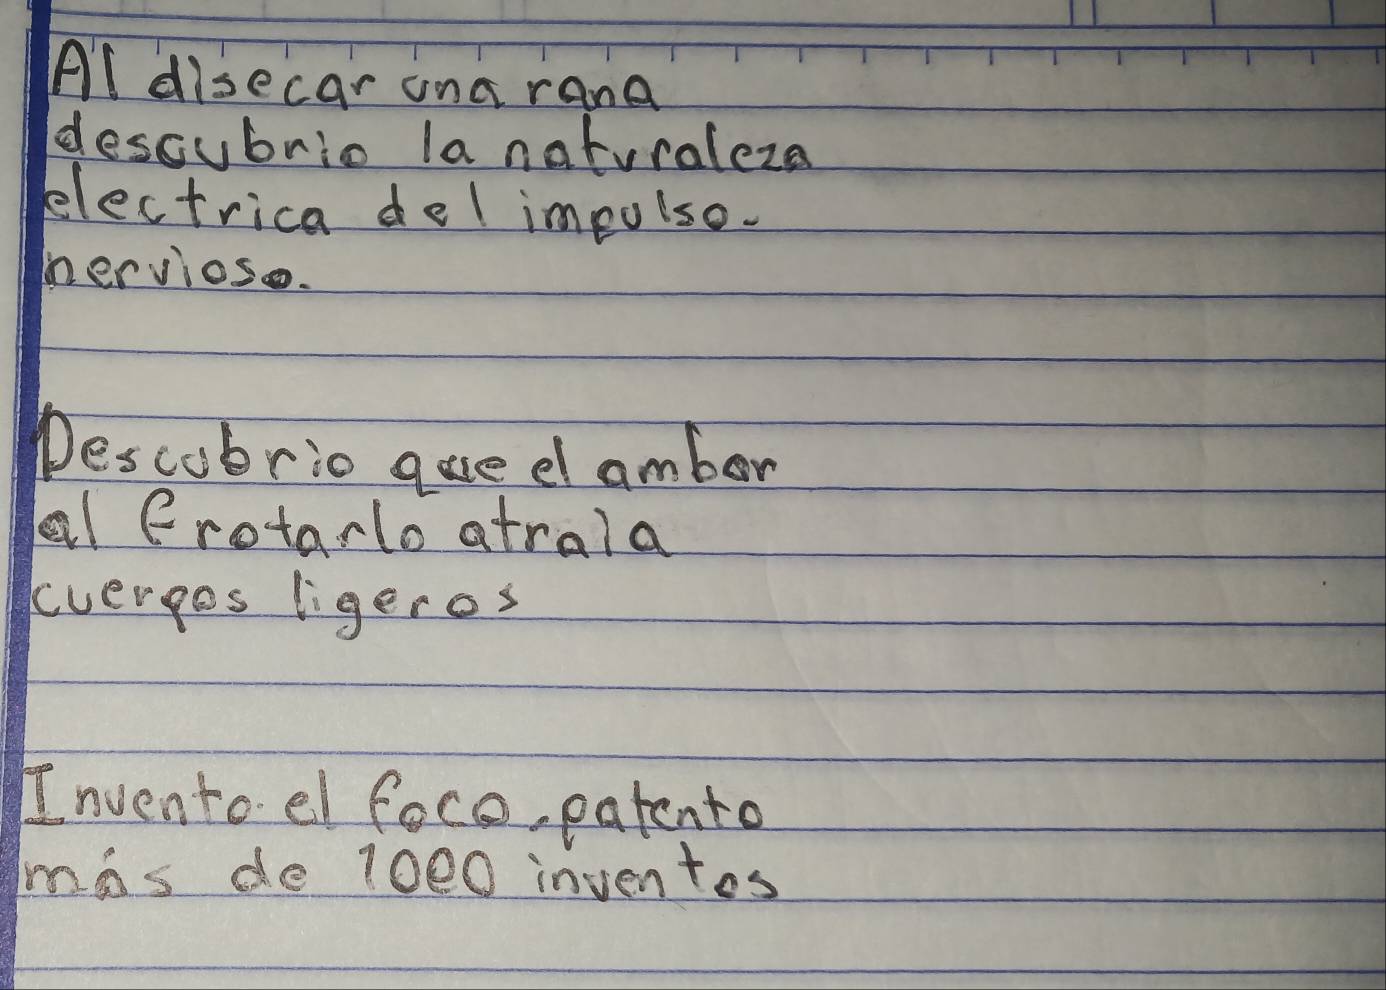 Al disecar una rana
descubrio la naturaleza
electrica del impulso.
nervioso.
Descubrio que el ambar
al frotarlo atraia
cuerpos ligeros
Invento el foco. patento
más de 1000 inventos